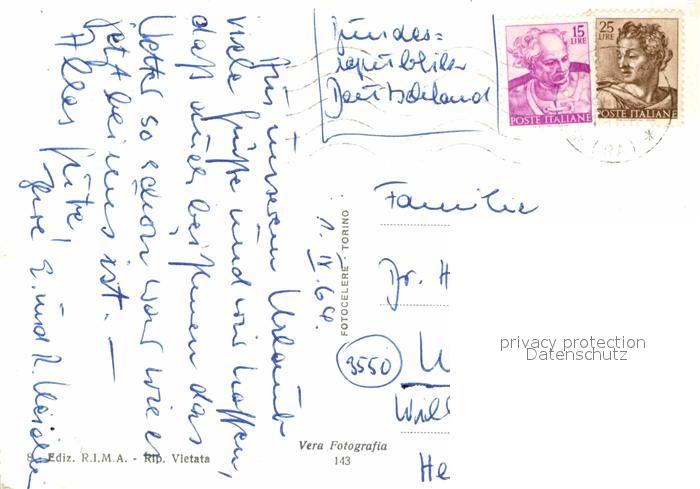 Aus unserem Urlaub
viele Grüße und wir hoffen,
daß auch bei Ihnen das
Wetter so schön war wie es
jetzt bei uns ist. —
Alles Gute!
Ihre E. und R.
1. IV. 64.
Bundes=
republik
Deutschland
15
LIRE
POSTE ITALIANE
25
LIRE
POSTE ITALIANE
Familie
Dr. H
3550
Wil
He
privacy protection
Datenschutz
FOTOCELERE - TORINO
Vera Fotografia
143
Ediz. R.I.M.A. - Rip. Vietata